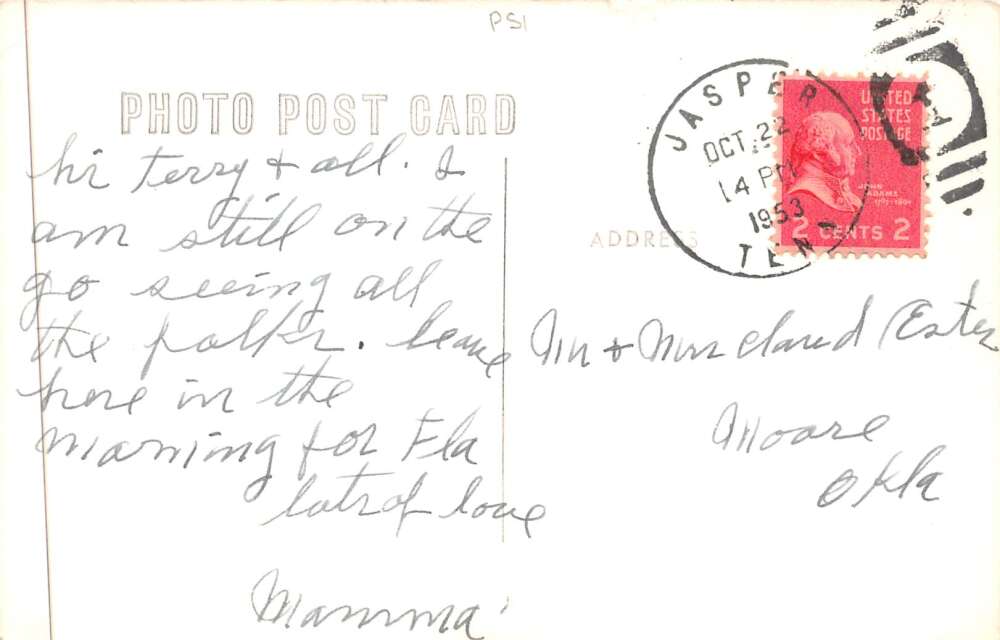 PS1
PHOTO POST CARD
hi Terry & all. I
am still on the
go seeing all
the folks. leave
here in the
morning for Fla
lots of love
Mamma
JASPER
OCT 22
4 PM
1953
TENN
UNITED
STATES
POSTAGE
JOHN
ADAMS
2 CENTS 2
ADDRESS
Mr & Mrs Claud Ester
Moore
Okla